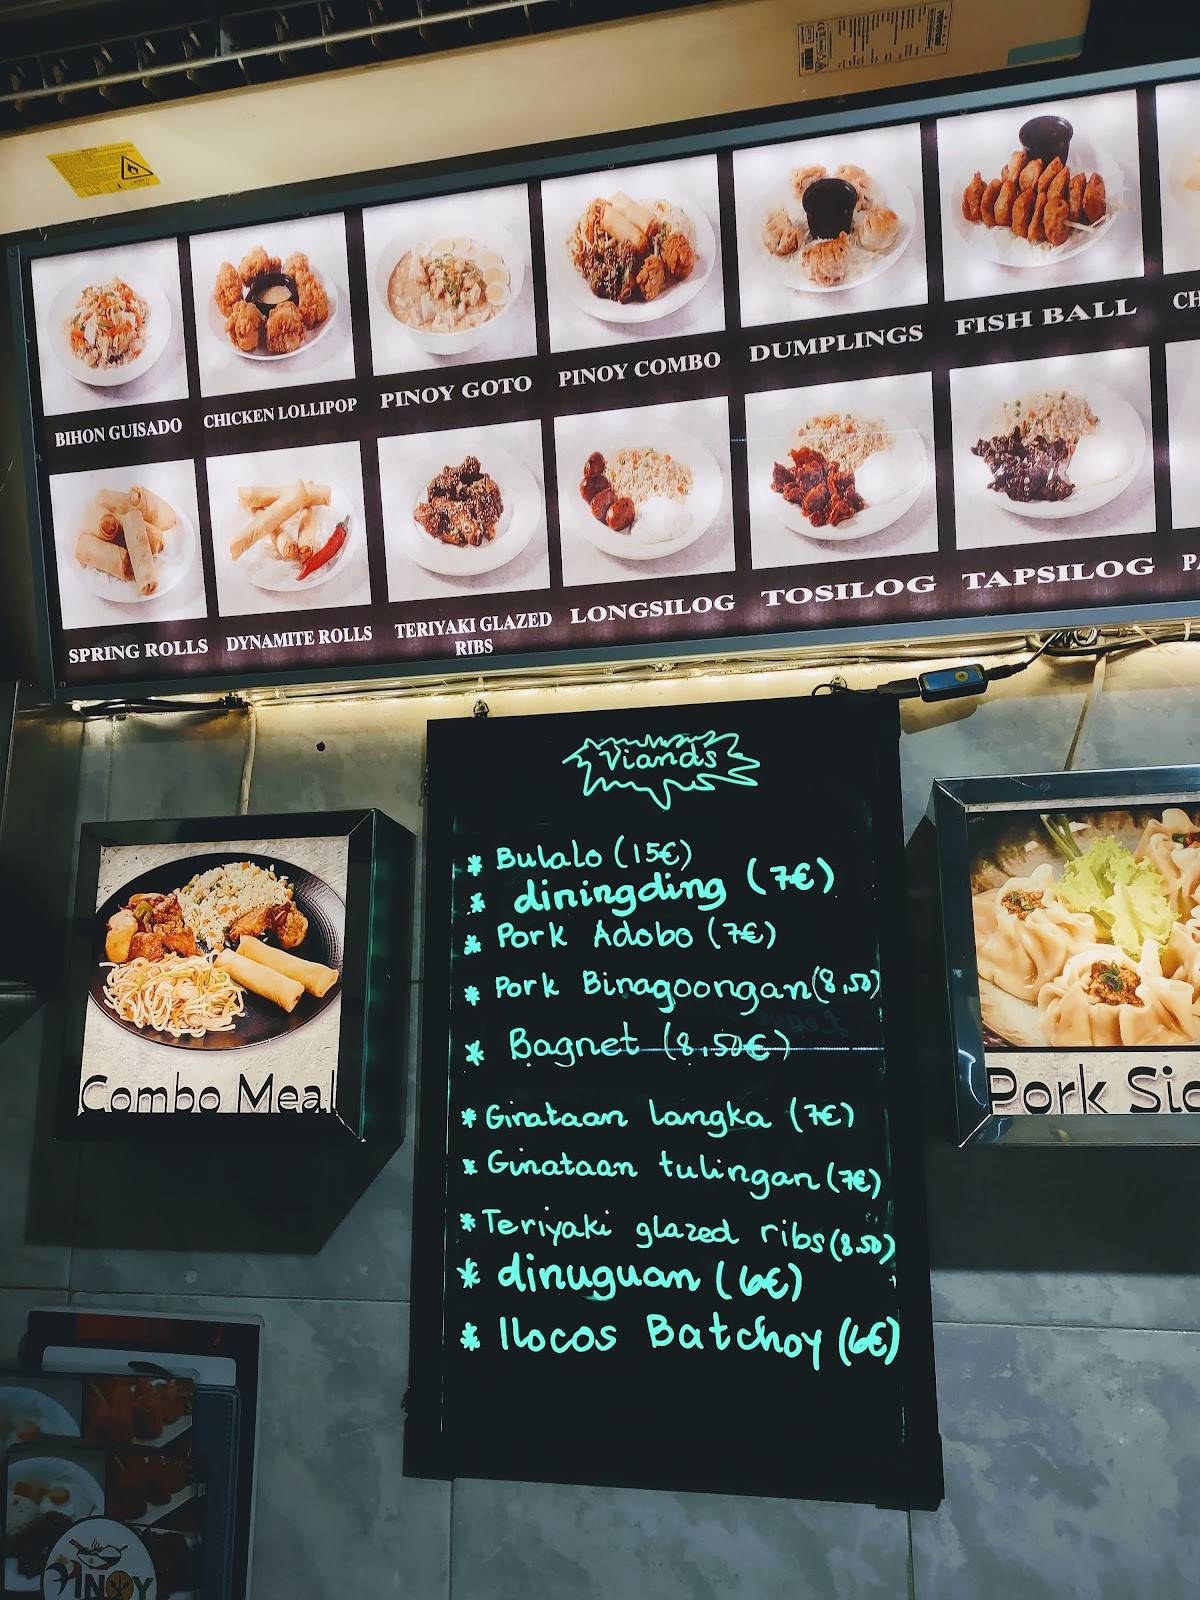 BIHON GUISADO
CHICKEN LOLLIPOP
PINOY GOTO
PINOY COMBO
DUMPLINGS
FISH BALL
CH
SPRING ROLLS
DYNAMITE ROLLS
TERIYAKI GLAZED
RIBS
LONGSILOG
TOSILOG
TAPSILOG
PA
Viands
* Bulalo (15€)
* diningding (7€)
* Pork Adobo (7€)
* Pork Binagoongan (8,50)
* Bagnet (8,50€)
* Ginataan langka (7€)
* Ginataan tulingan (7€)
* Teriyaki glazed ribs (8.50)
* dinuguan (6€)
* Ilocos Batchoy (6€)
Combo Meal
Pork Sio
PINOY